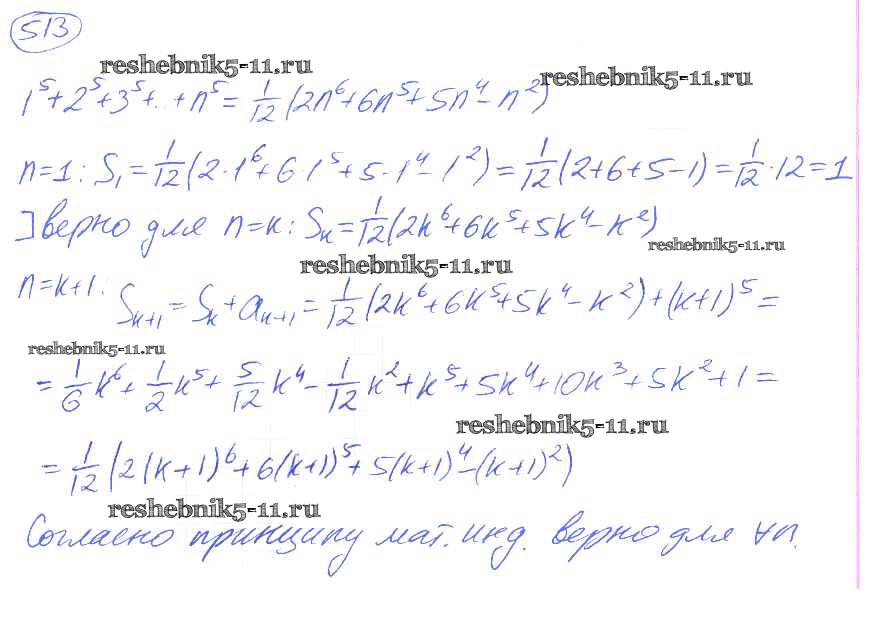 513
reshebnik5-11.ru
1⁵+2⁵+3⁵+..+n⁵= 1/12 (2n⁶+6n⁵+5n⁴-n²) reshebnik5-11.ru
n=1: S₁=1/12(2·1⁶+6·1⁵+5·1⁴-1²)=1/12(2+6+5-1)=1/12·12=1
] верно для n=k: Sₖ=1/12(2k⁶+6k⁵+5k⁴-k²)
reshebnik5-11.ru
reshebnik5-11.ru
n=k+1: Sₖ₊₁=Sₖ+aₖ₊₁=1/12(2k⁶+6k⁵+5k⁴-k²)+(k+1)⁵=
reshebnik5-11.ru
=1/6k⁶+1/2k⁵+5/12k⁴-1/12k²+k⁵+5k⁴+10k³+5k²+1=
reshebnik5-11.ru
=1/12(2(k+1)⁶+6(k+1)⁵+5(k+1)⁴-(k+1)²)
reshebnik5-11.ru
Согласно принципу мат. инд. верно для ∀n.